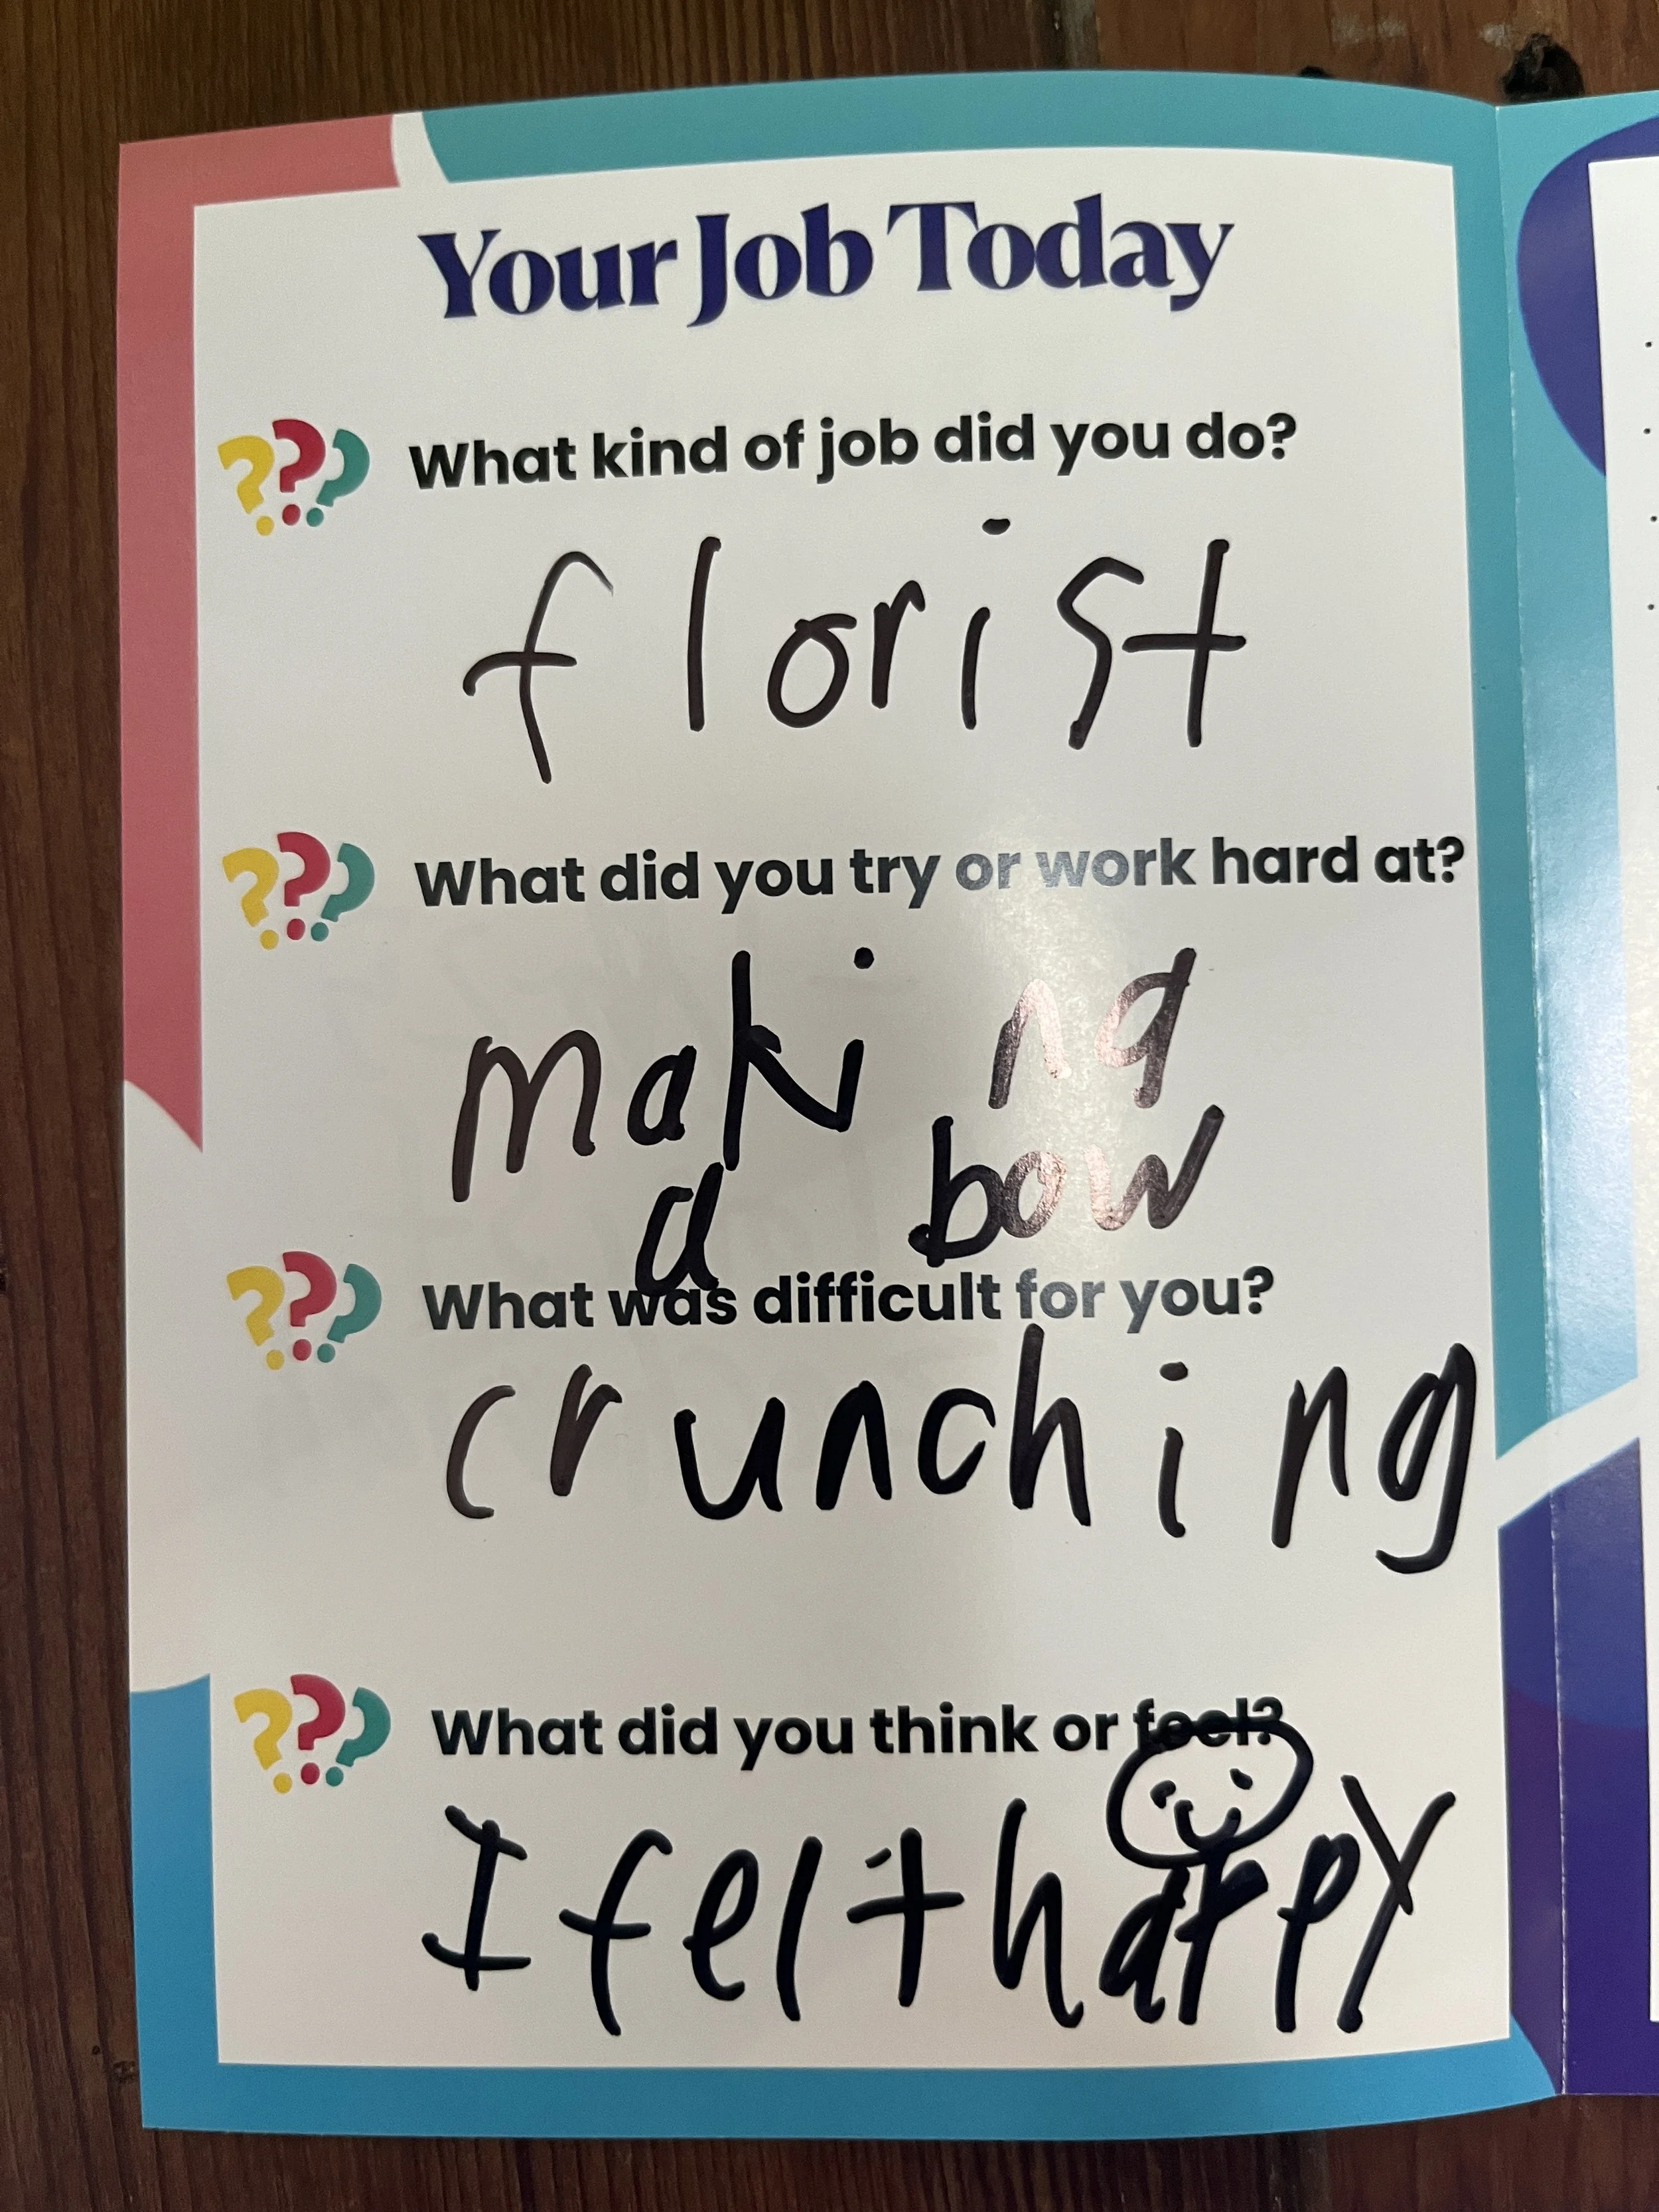 Your Job Today
What kind of job did you do?
florist
What did you try or work hard at?
making
a bow
What was difficult for you?
crunching
What did you think or feel?
I felt happy